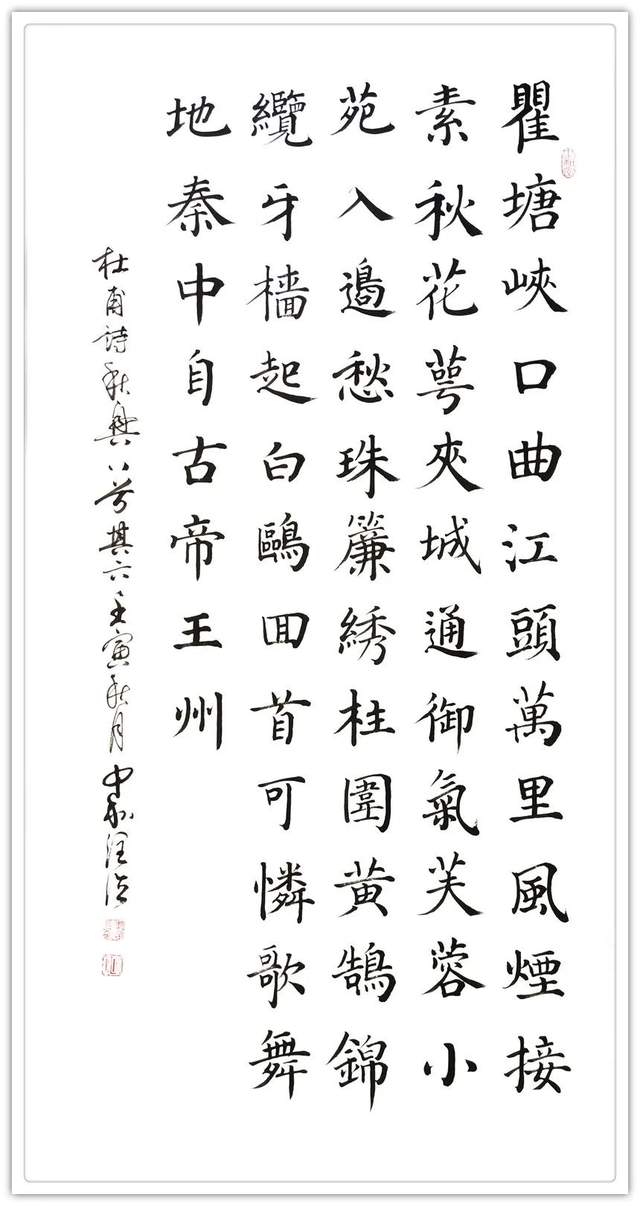 瞿塘峽口曲江頭萬里風煙接
素秋花萼夾城通御氣芙蓉小
苑入邊愁珠簾綉柱圍黄鵠錦
纜牙檣起白鷗回首可憐歌舞
地秦中自古帝王州
杜甫詩秋興八首其六壬寅秋月中和